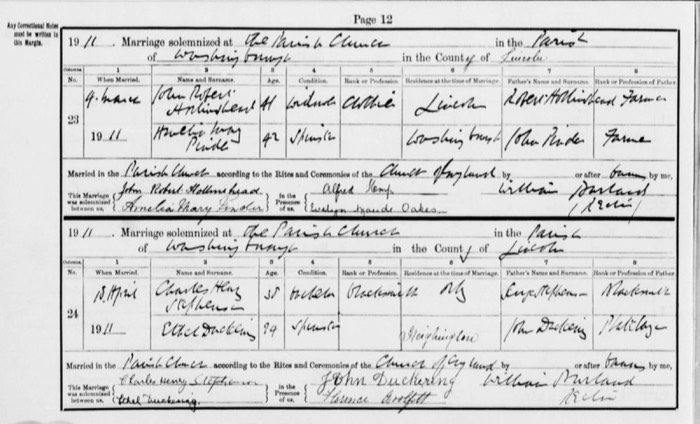 Page 12
Any Correctional Notes
must be written in
this Margin.
1911. Marriage solemnized at the Parish Church in the Parish
of Washingborough in the County of Lincoln
Columns 1 2 3 4 5 6 7 8
No. When Married. Name and Surname. Age. Condition. Rank or Profession. Residence at the time of Marriage. Father's Name and Surname. Rank or Profession of Father
23 John Robert Hollinshead 41 Widower Clothier Lincoln Robert Hollinshead Farmer
1911 Amelia Mary Pinder 42 Spinster Washingborough John Pinder Farmer
Married in the Parish Church according to the Rites and Ceremonies of the Church of England by or after Banns by me,
This Marriage was solemnized between us, John Robert Hollinshead In the Presence of us, Alfred Kemp William Burland
Amelia Mary Pinder Evelyn Maude Oakes (Rector)
1911. Marriage solemnized at the Parish Church in the Parish
of Washingborough in the County of Lincoln
Columns 1 2 3 4 5 6 7 8
No. When Married. Name and Surname. Age. Condition. Rank or Profession. Residence at the time of Marriage. Father's Name and Surname. Rank or Profession of Father
24 18 April Charles Henry Stephenson Bachelor Blacksmith Stephenson Blacksmith
1911 Ethel Duckering Spinster Heighington John Duckering Platelayer
Married in the Parish Church according to the Rites and Ceremonies of the Church of England by or after Banns by me,
This Marriage was solemnized between us, Charles Henry Stephenson In the Presence of us, John Duckering William Burland
Ethel Duckering Florence Rector